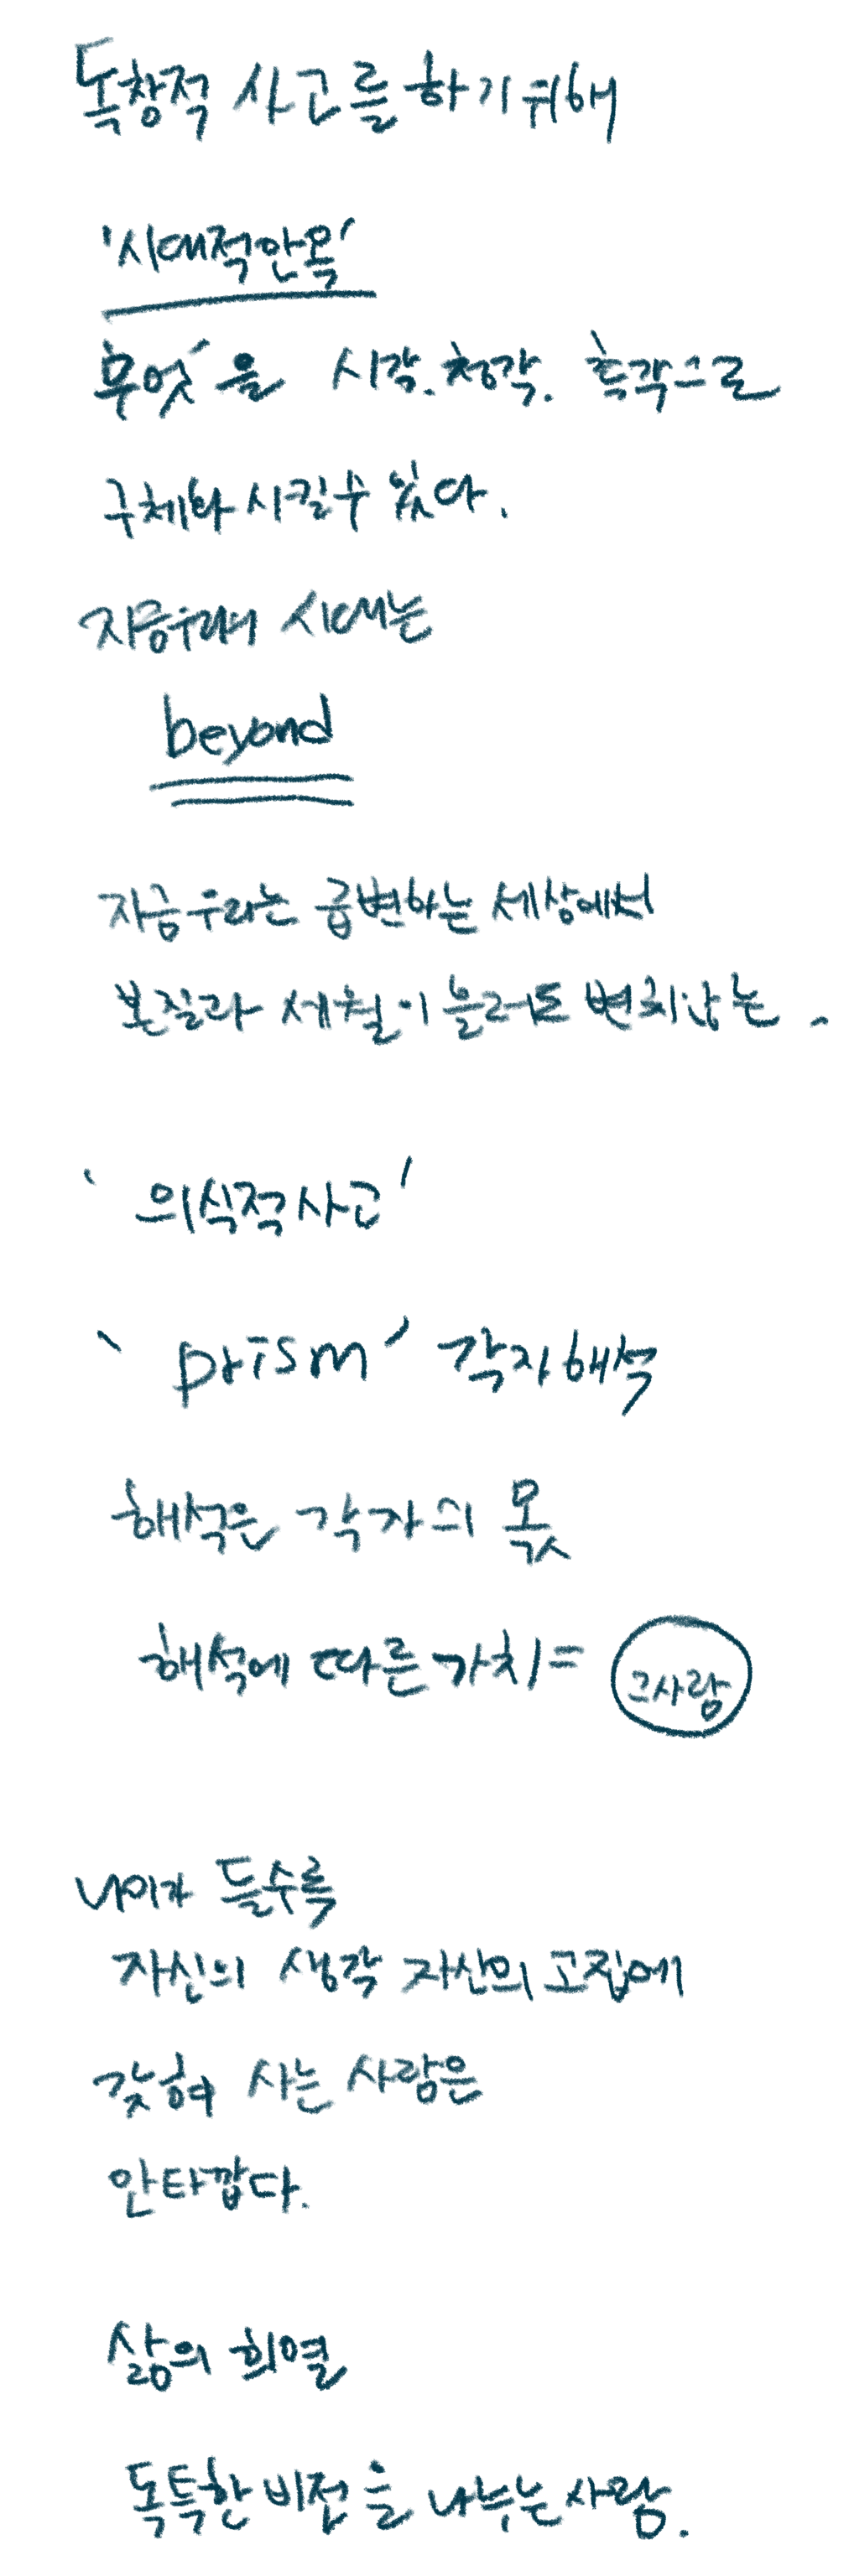 독창적 사고를 하기 위해
'시대적안목'
무엇'을 시각. 청각. 촉각으로
구체화 시킬수 있다.
지금우리의 시대는
beyond
지금 우리는 급변하는 세상에서
본질과 세월이 흘러도 변치않는
' 의식적사고'
' prism' 각자해석
해석은 각자의 몫
해석에 따른 가치= 그사람
나이가 들수록
자신의 생각 자신의 고집에
갖혀 사는 사람은
안타깝다.
삶의 희열
독특한 비전을 나누는 사람.